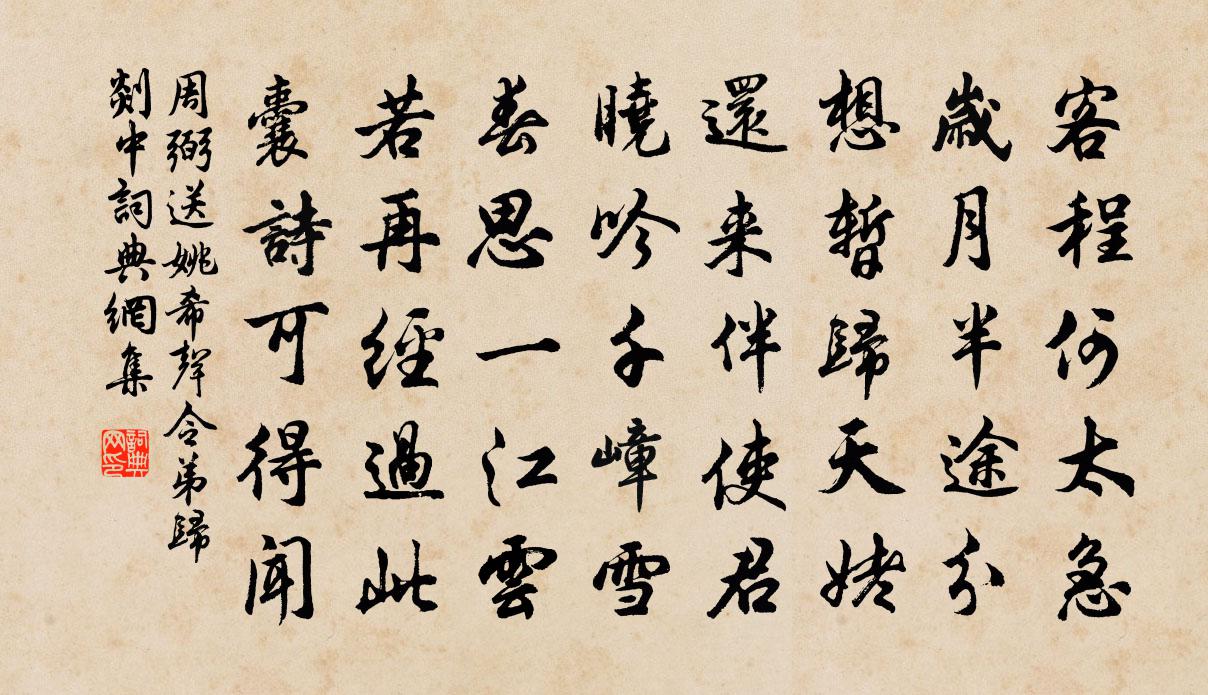 客程何太急
歲月半途分
想暫歸天姥
還来伴使君
曉吟千嶂雪
春思一江雲
若再經過此
囊詩可得聞
周弼送姚希聲令弟歸
剡中詞典網集
詞典
网印